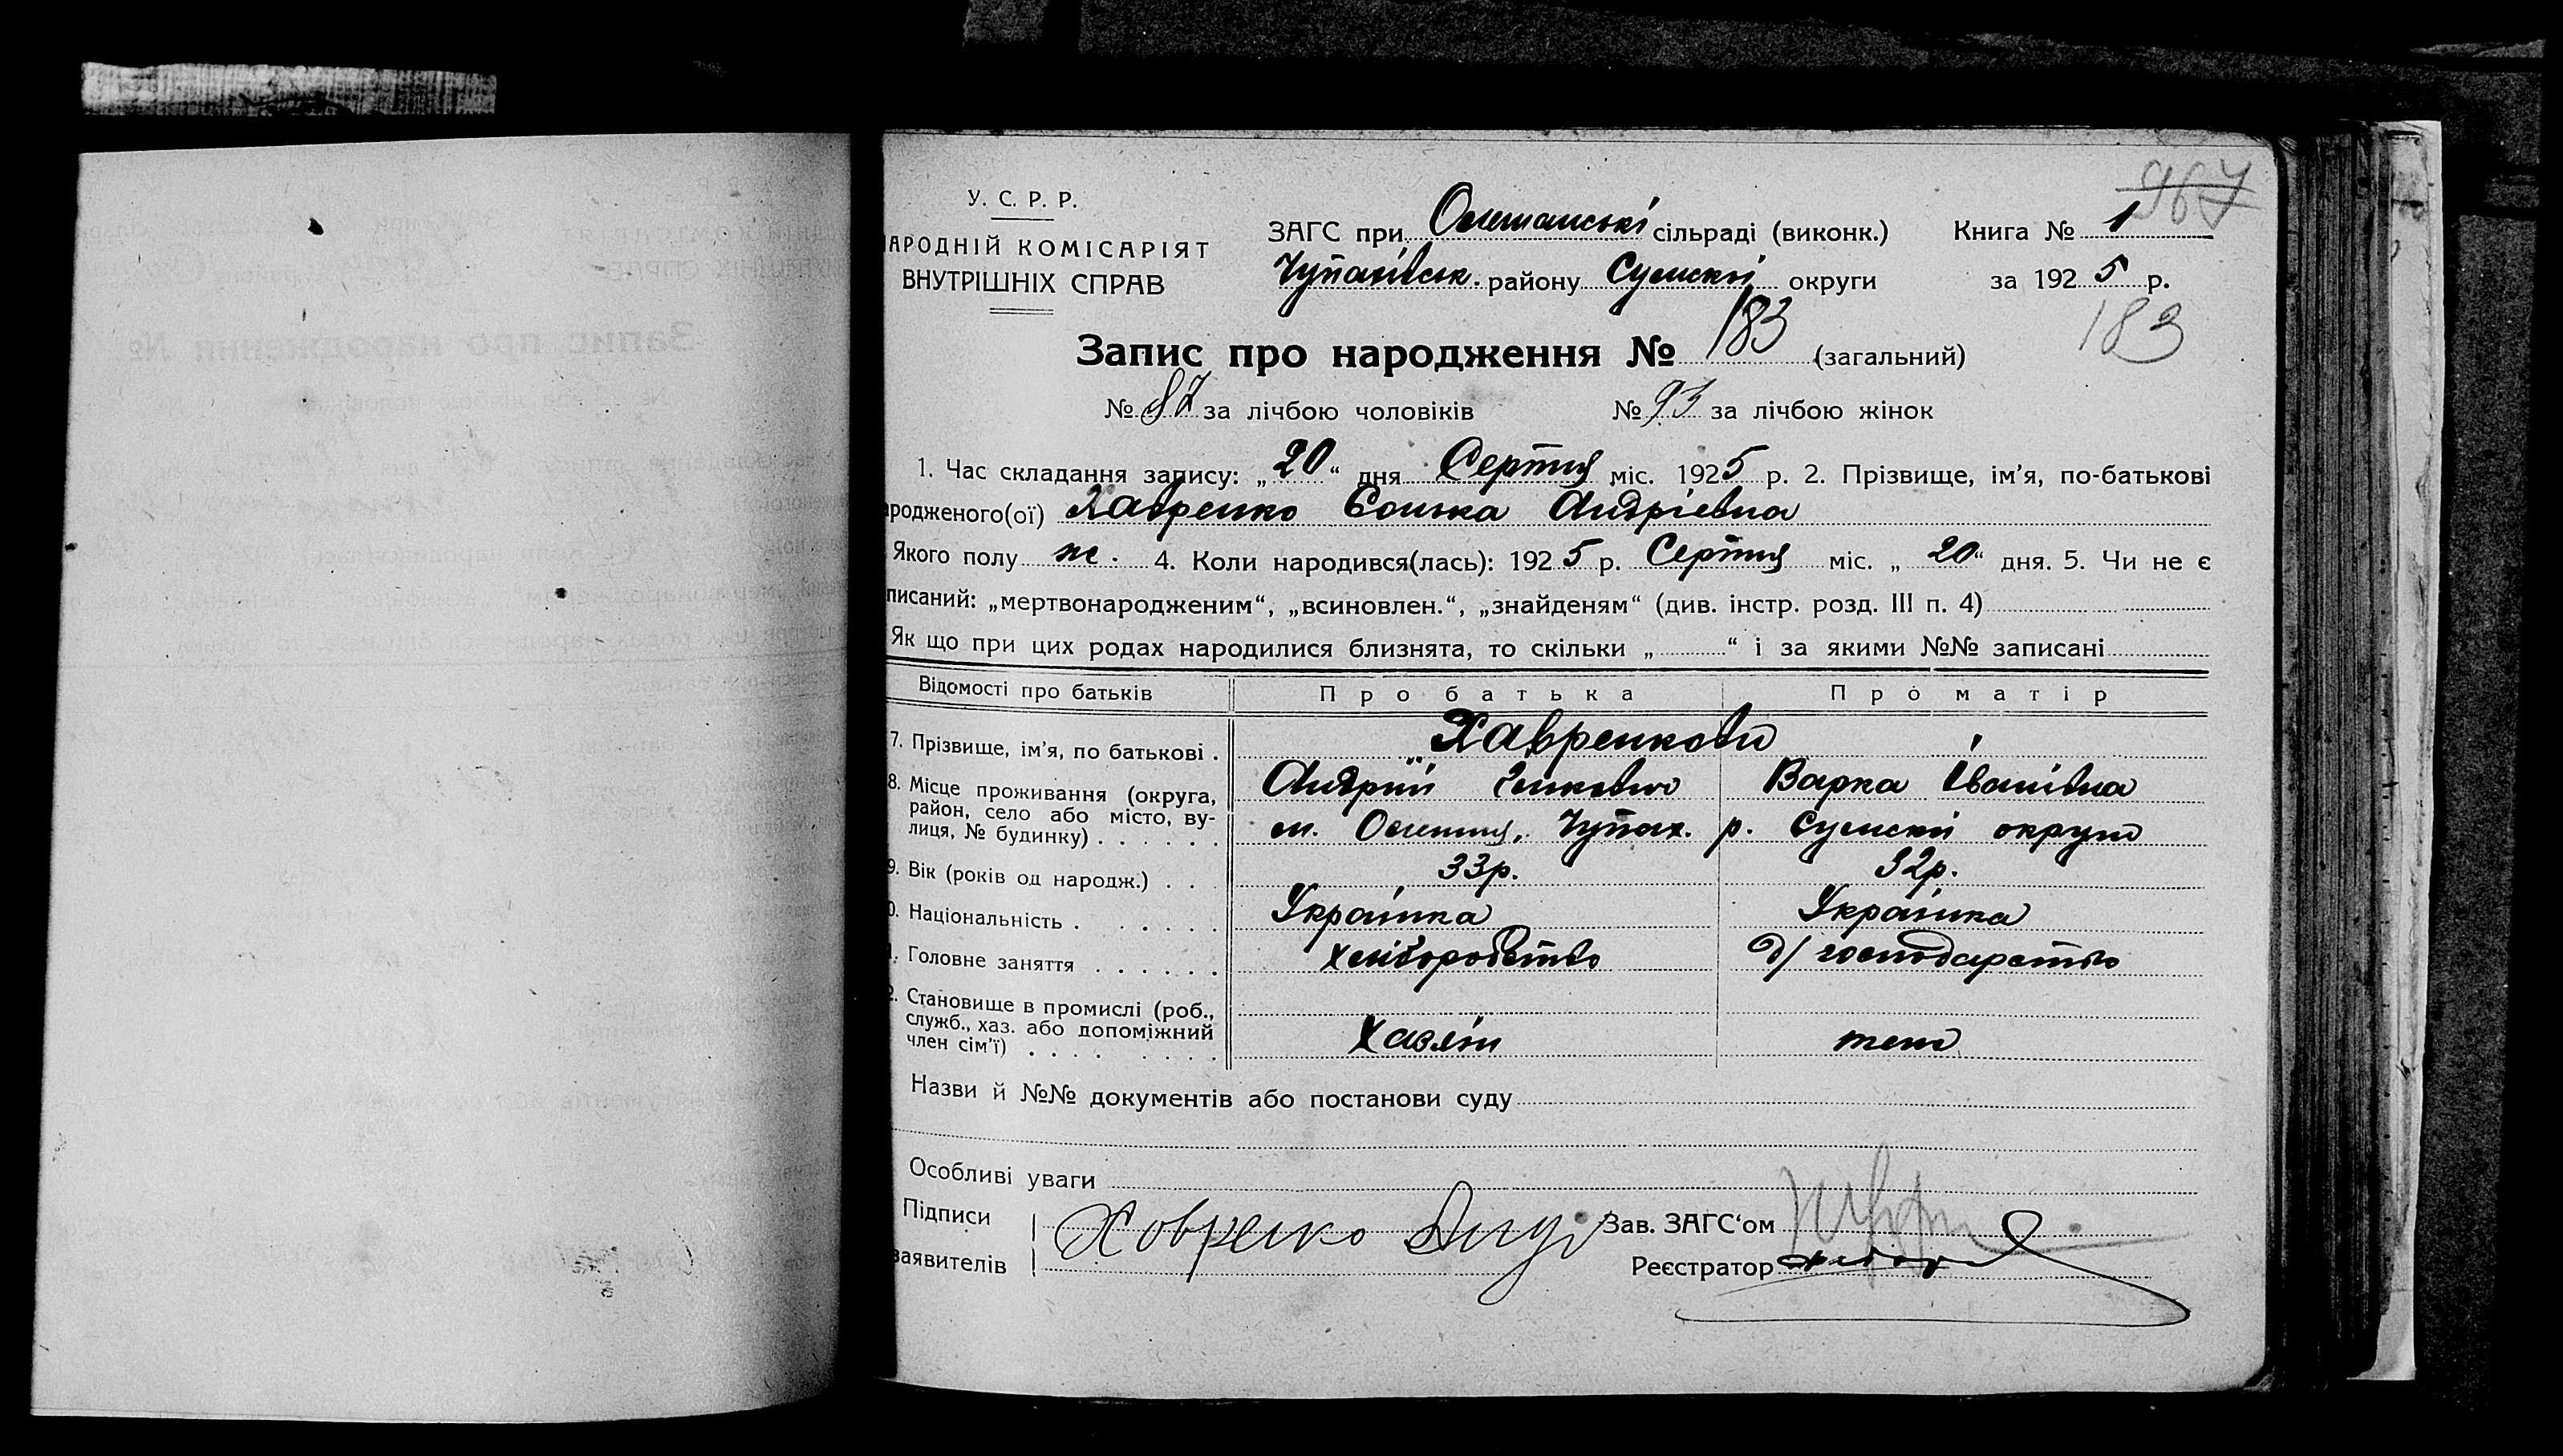 967
У. С. Р. Р.
АРОДНІЙ КОМІСАРІЯТ
ВНУТРІШНІХ СПРАВ
ЗАГС при Олешанські сільраді (виконк.) Книга № 1
Чупахівськ. району Сумской округи за 1925 р.
Запис про народження № 183 (загальний) 183
№ 87 за лічбою чоловіків № 93 за лічбою жінок
1. Час складання запису: „20“ дня Серпня міс. 1925 р. 2. Прізвище, ім’я, по-батькові
родженого(ої) Хавренко Андріевна
Якого полу ж. 4. Коли народився(лась): 1925 р. Серпня міс. „20“ дня. 5. Чи не є
писаний: „мертвонародженим“, „всиновлен.“, „знайденям“ (див. інстр. розд. III п. 4)
Як що при цих родах народилися близнята, то скільки „ “ і за якими №№ записані
Відомості про батьків Про батька Про матір
7. Прізвище, ім’я, по батькові . Хавренкови
Андрій Варка Іванівна
8. Місце проживання (округа, район, село або місто, вулиця, № будинку) . . . . . . м. Олешня, Чупах. р. Сумской округи
9. Вік (років од народж.) . . . 33р. 32р.
0. Національність . . . . . . Українка Українка
1. Головне заняття . . . . . . хліборобство д/господарство
2. Становище в промислі (роб., служб., хаз. або допоміжний член сім’ї) . . . . . . . . Хазяїн
Назви й №№ документів або постанови суду
Особливі уваги
Підписи
заявителів
Ховренко Анд
Зав. ЗАГС‘ом
Реєстратор